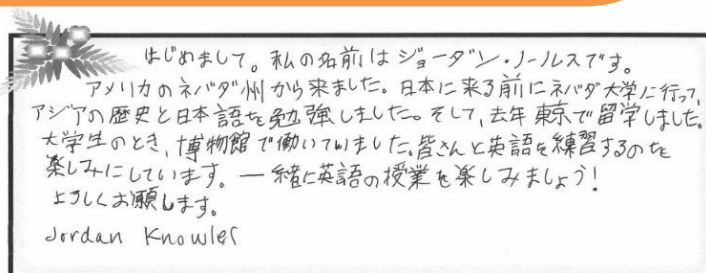 はじめまして。私の名前はジョーダン・ノールスです。
アメリカのネバダ州から来ました。日本に来る前にネバダ大学に行って、
アジアの歴史と日本語を勉強しました。そして、去年東京で留学しました。
大学生のとき、博物館で働いていました。皆さんと英語を練習するのを
楽しみにしています。一緒に英語の授業を楽しみましょう!
よろしくお願します。
Jordan Knowles